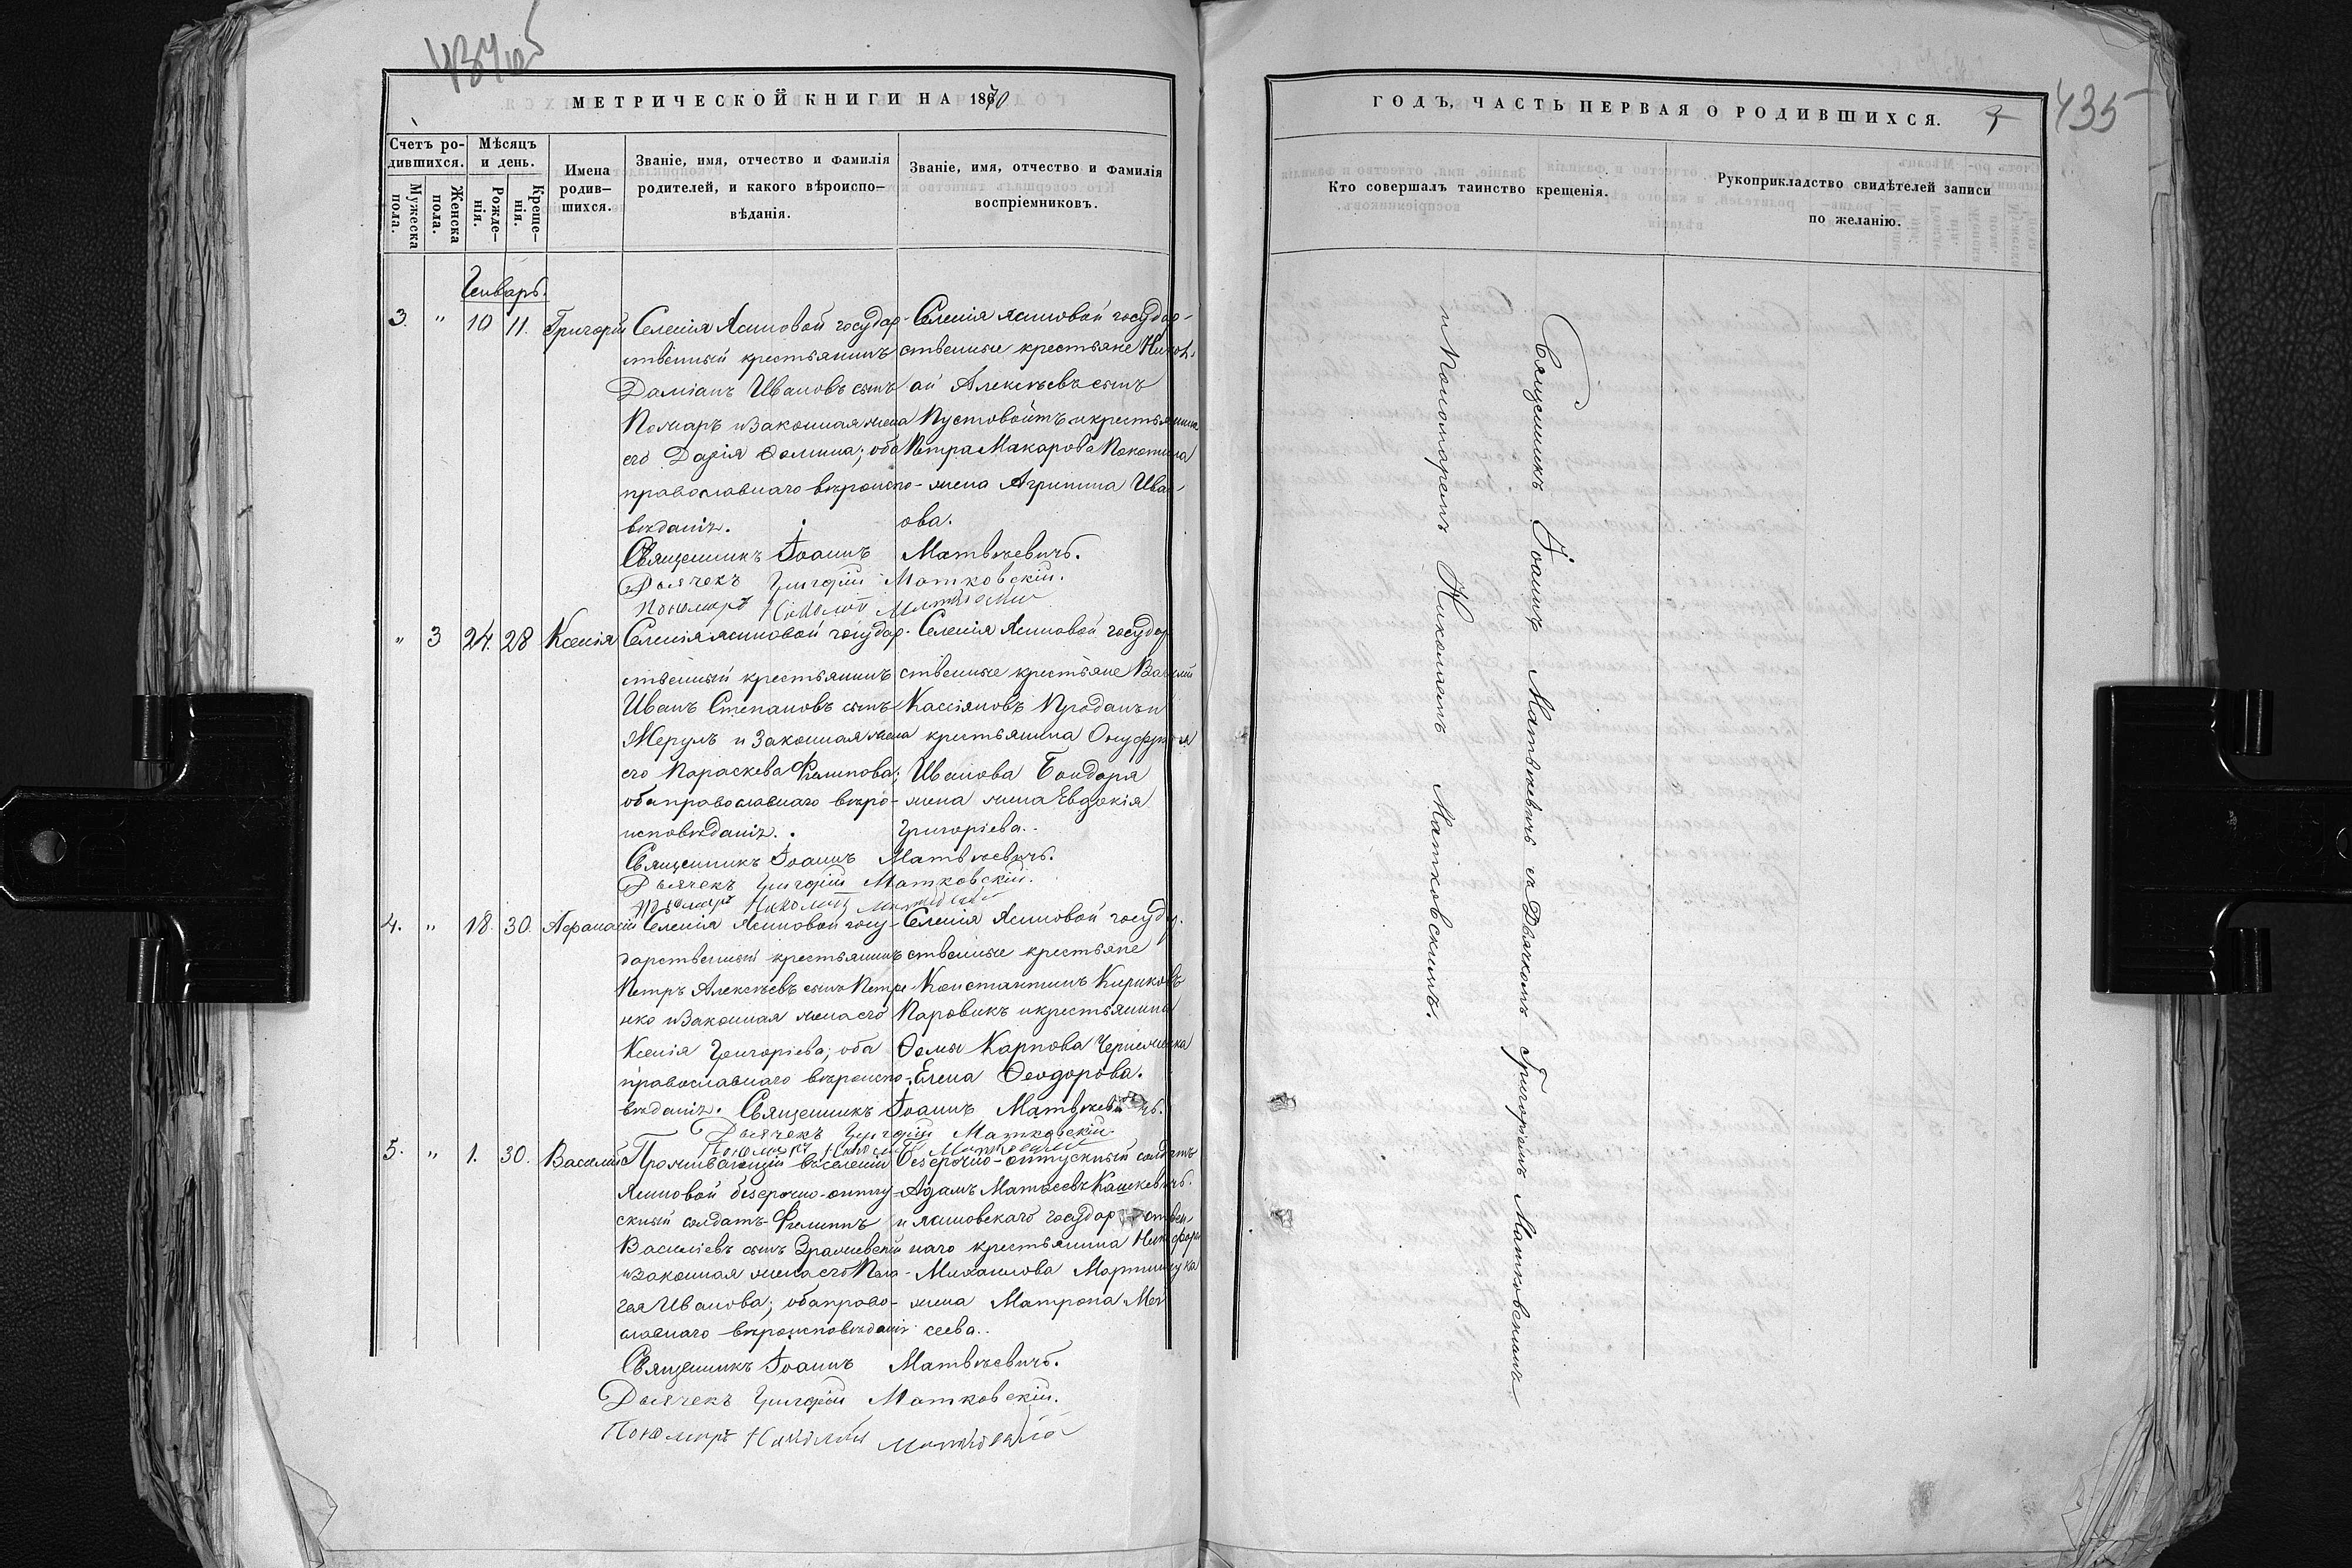 435
МЕТРИЧЕСКОЙ КНИГИ НА 1870
Счетъ ро-
дившихся.
Мужеска
пола.
Женска
пола.
Мѣсяцъ
и день.
Рожде-
нія.
Креще-
нія.
Имена
родив-
шихся.
Званіе, имя, отчество и фамилія
родителей, и какого вѣроиспо-
вѣданія.
Званіе, имя, отчество и фамилія
воспріемниковъ.
Генварь.
3. " 10 11. Григорій
Селенія Ясиновой государ-
ственный крестьянинъ
Даміанъ Ивановъ сынъ
и законная жена
его Дарія Ѳомина; оба
православнаго вѣроиспо-
вѣданія.
Селенія Ясиновой государ-
ственные крестьяне Никол-
ай Алексѣевъ сынъ
Пустовойтъ и крестьянина
Петра Макарова Покотила
жена Агрипина Ива-
ова.
Священникъ Іоаннъ Матвѣевичъ.
Дьячекъ Григорій Матковскій.
Пономарь Николай Матковскій
" 3 24. 28 Ксенія
Селенія Ясиновой государ-
ственный крестьянинъ
Иванъ Степановъ сынъ
и законная жена
его Параскева Филипова;
оба православнаго вѣро-
исповѣданія.
Селенія Ясиновой государ
ственные крестьяне Василій
Кассіяновъ Проданъ и
крестьянина Онуфрія
Иванова Бондаря
жена жена Евдокія
Григоріева.
Священникъ Іоаннъ Матвѣевичъ.
Дьячекъ Григорій Матковскій.
Пономарь Николай Матковскій
4. " 18. 30. Афанасій
Селенія Ясиновой госу-
дарственный крестьянинъ
Петръ Алексѣевъ сынъ Петре
нко и законная жена его
Ксенія Григоріева; оба
православнаго вѣроиспо-
вѣданія.
Селенія Ясиновой государ.
ственные крестьяне
Константинъ Кириковъ
Паровикъ и крестьянина
Ѳомы Карпова
Елена Ѳеодорова.
Священникъ Іоаннъ Матвѣевичъ.
Дьячекъ Григорій Матковскій.
Пономарь Николай Матковскій
5. " 1. 30. Василій
Проживающій въ селеніи
Ясиновой безсрочно-отпу-
скный солдатъ Филиппъ
Василіевъ сынъ
и законная жена его Пела-
гея Иванова; оба право-
славнаго вѣроисповѣданія
Безсрочно-отпускный солдатъ
Адамъ Матвеевъ Кашкевичъ.
и ясиновскаго государствен-
наго крестьянина Никифора
Михаилова Мартинчука
жена Матрона Мои
сеева.
Священникъ Іоаннъ Матвѣевичъ.
Дьячекъ Григорій Матковскій.
Пономарь Николай Матковскій
ГОДЪ, ЧАСТЬ ПЕРВАЯ О РОДИВШИХСЯ.
435
Кто совершалъ таинство крещенія.
Рукоприкладство свидѣтелей записи
по желанію.
Священникъ Іоаннъ Матвѣевичъ съ Дьячкомъ Григоріемъ Матковскимъ
и Пономаремъ Николаемъ Матковскимъ.